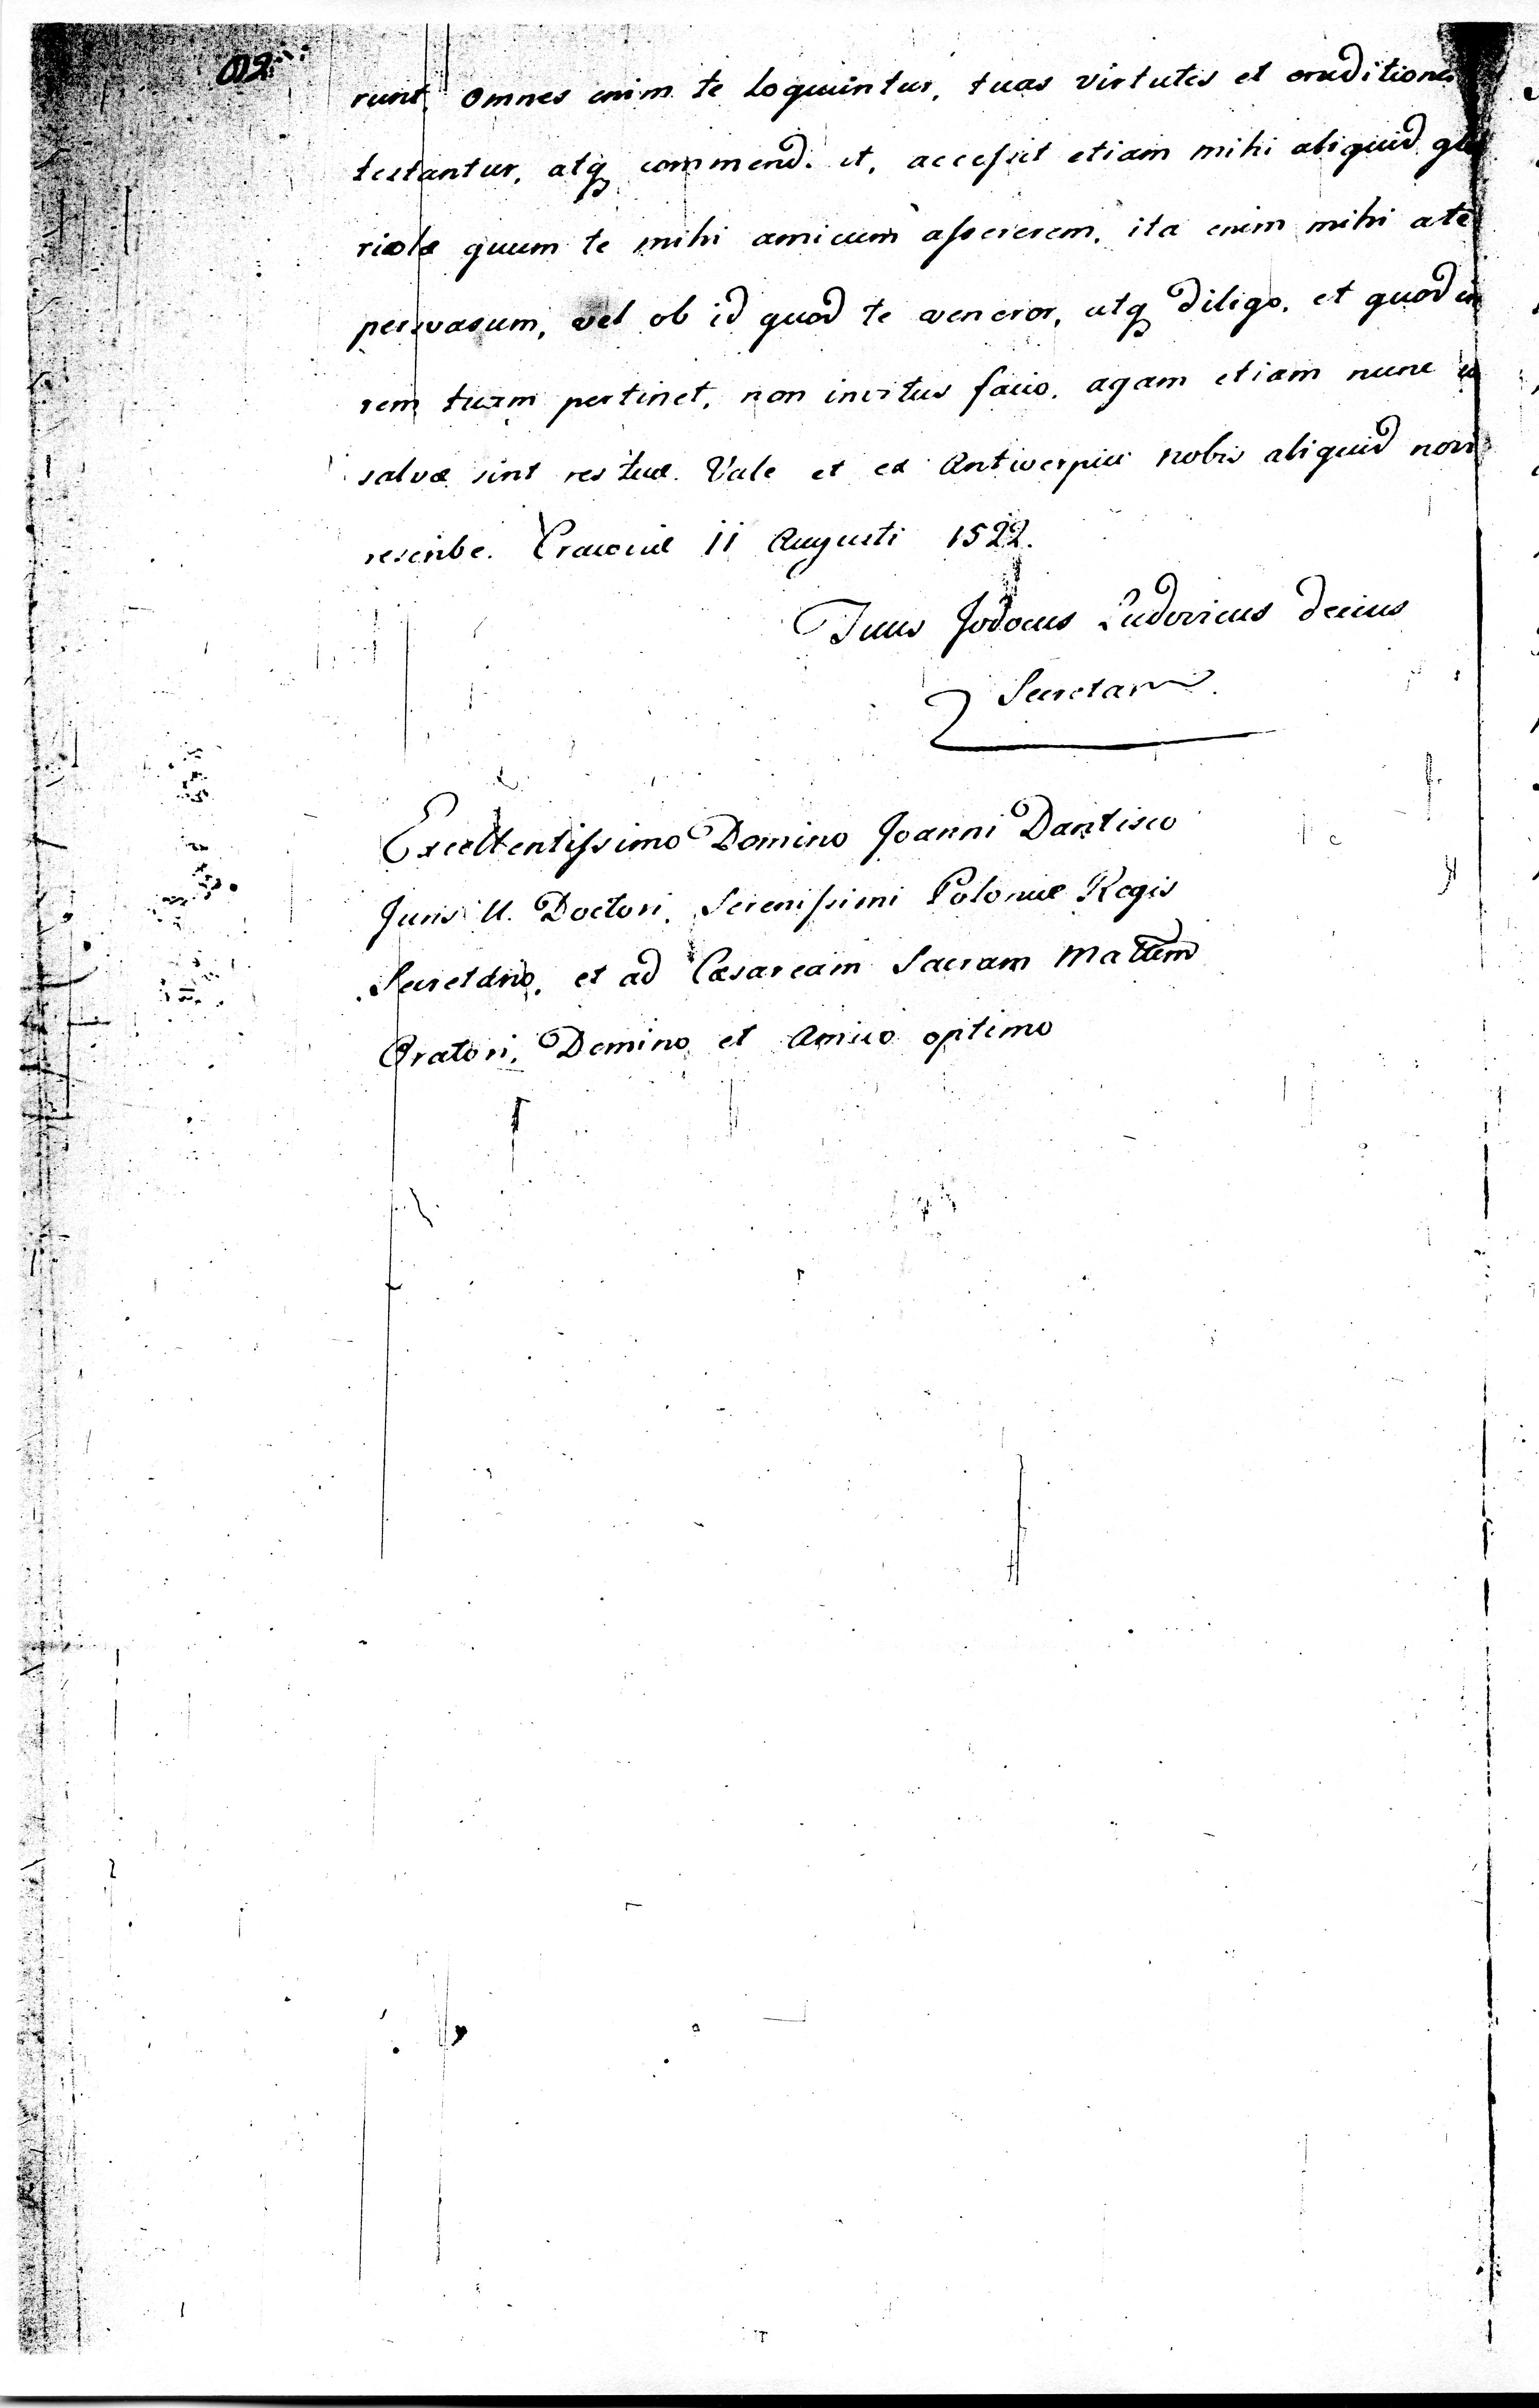 runt, omnes enim te loquuntur, tuas virtutes et eruditiones
testantur, atq commend. et, accessit etiam mihi aliquid glo
riolæ quum te mihi amicum assererem, ita enim mihi a te
persvasum, vel ob id quod te veneror, atq diligo, et quod in
rem tuam pertinet, non invitus facio, agam etiam nunc ut
salvæ sint res tuæ. Vale et ex Antwerpia nobis aliquid novi
rescribe. Cracoviæ 11 Augusti 1522.
Tuus Jodocus Ludovicus Decius
Secretar
Excellentissimo Domino Joanni Dantisco
Juris U. Doctori, Serenissimi Poloniæ Regis
Secretario, et ad Cæsaream Sacram Mattem
Oratori, Domino et Amico optimo